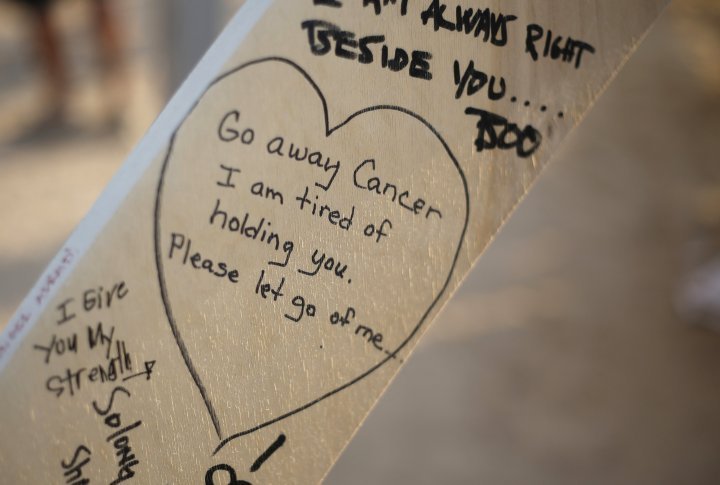 I AM ALWAYS RIGHT
BESIDE YOU....
BOO
Go away Cancer
I am tired of
holding you.
Please let go of me...
I Give
You My
Strength